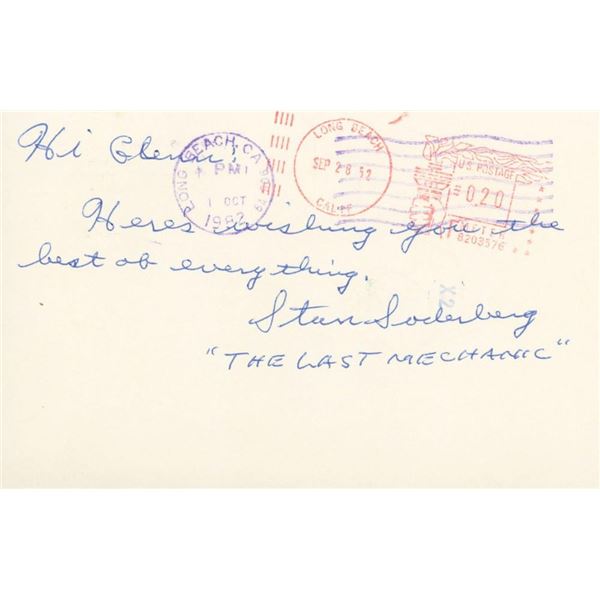 Hi Glenn;
LONG BEACH, CA
PM
1 OCT
1982
LONG BEACH
SEP 28 '82
CALIF
U.S. POSTAGE
0.20
METER
8203576
Heres wishing you the
best of everything.
X2
Stan Soderberg
"THE LAST MECHANIC"